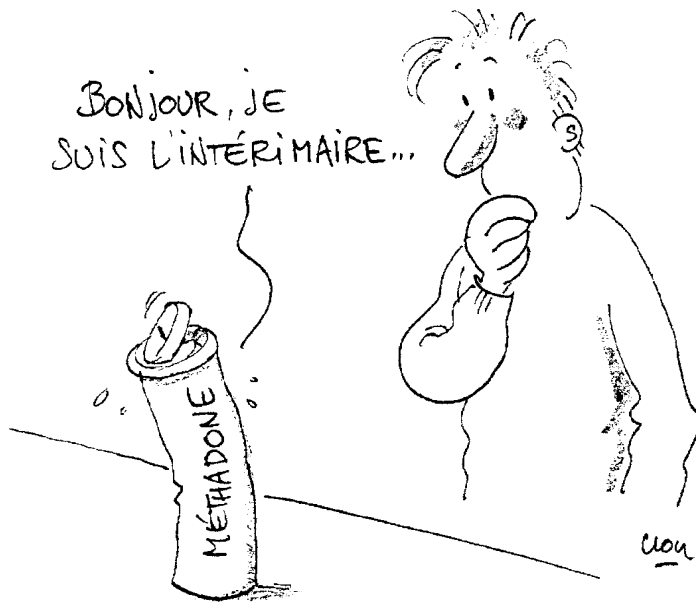 BONJOUR, JE
SUIS L'INTÉRIMAIRE...
MÉTHADONE
Clou